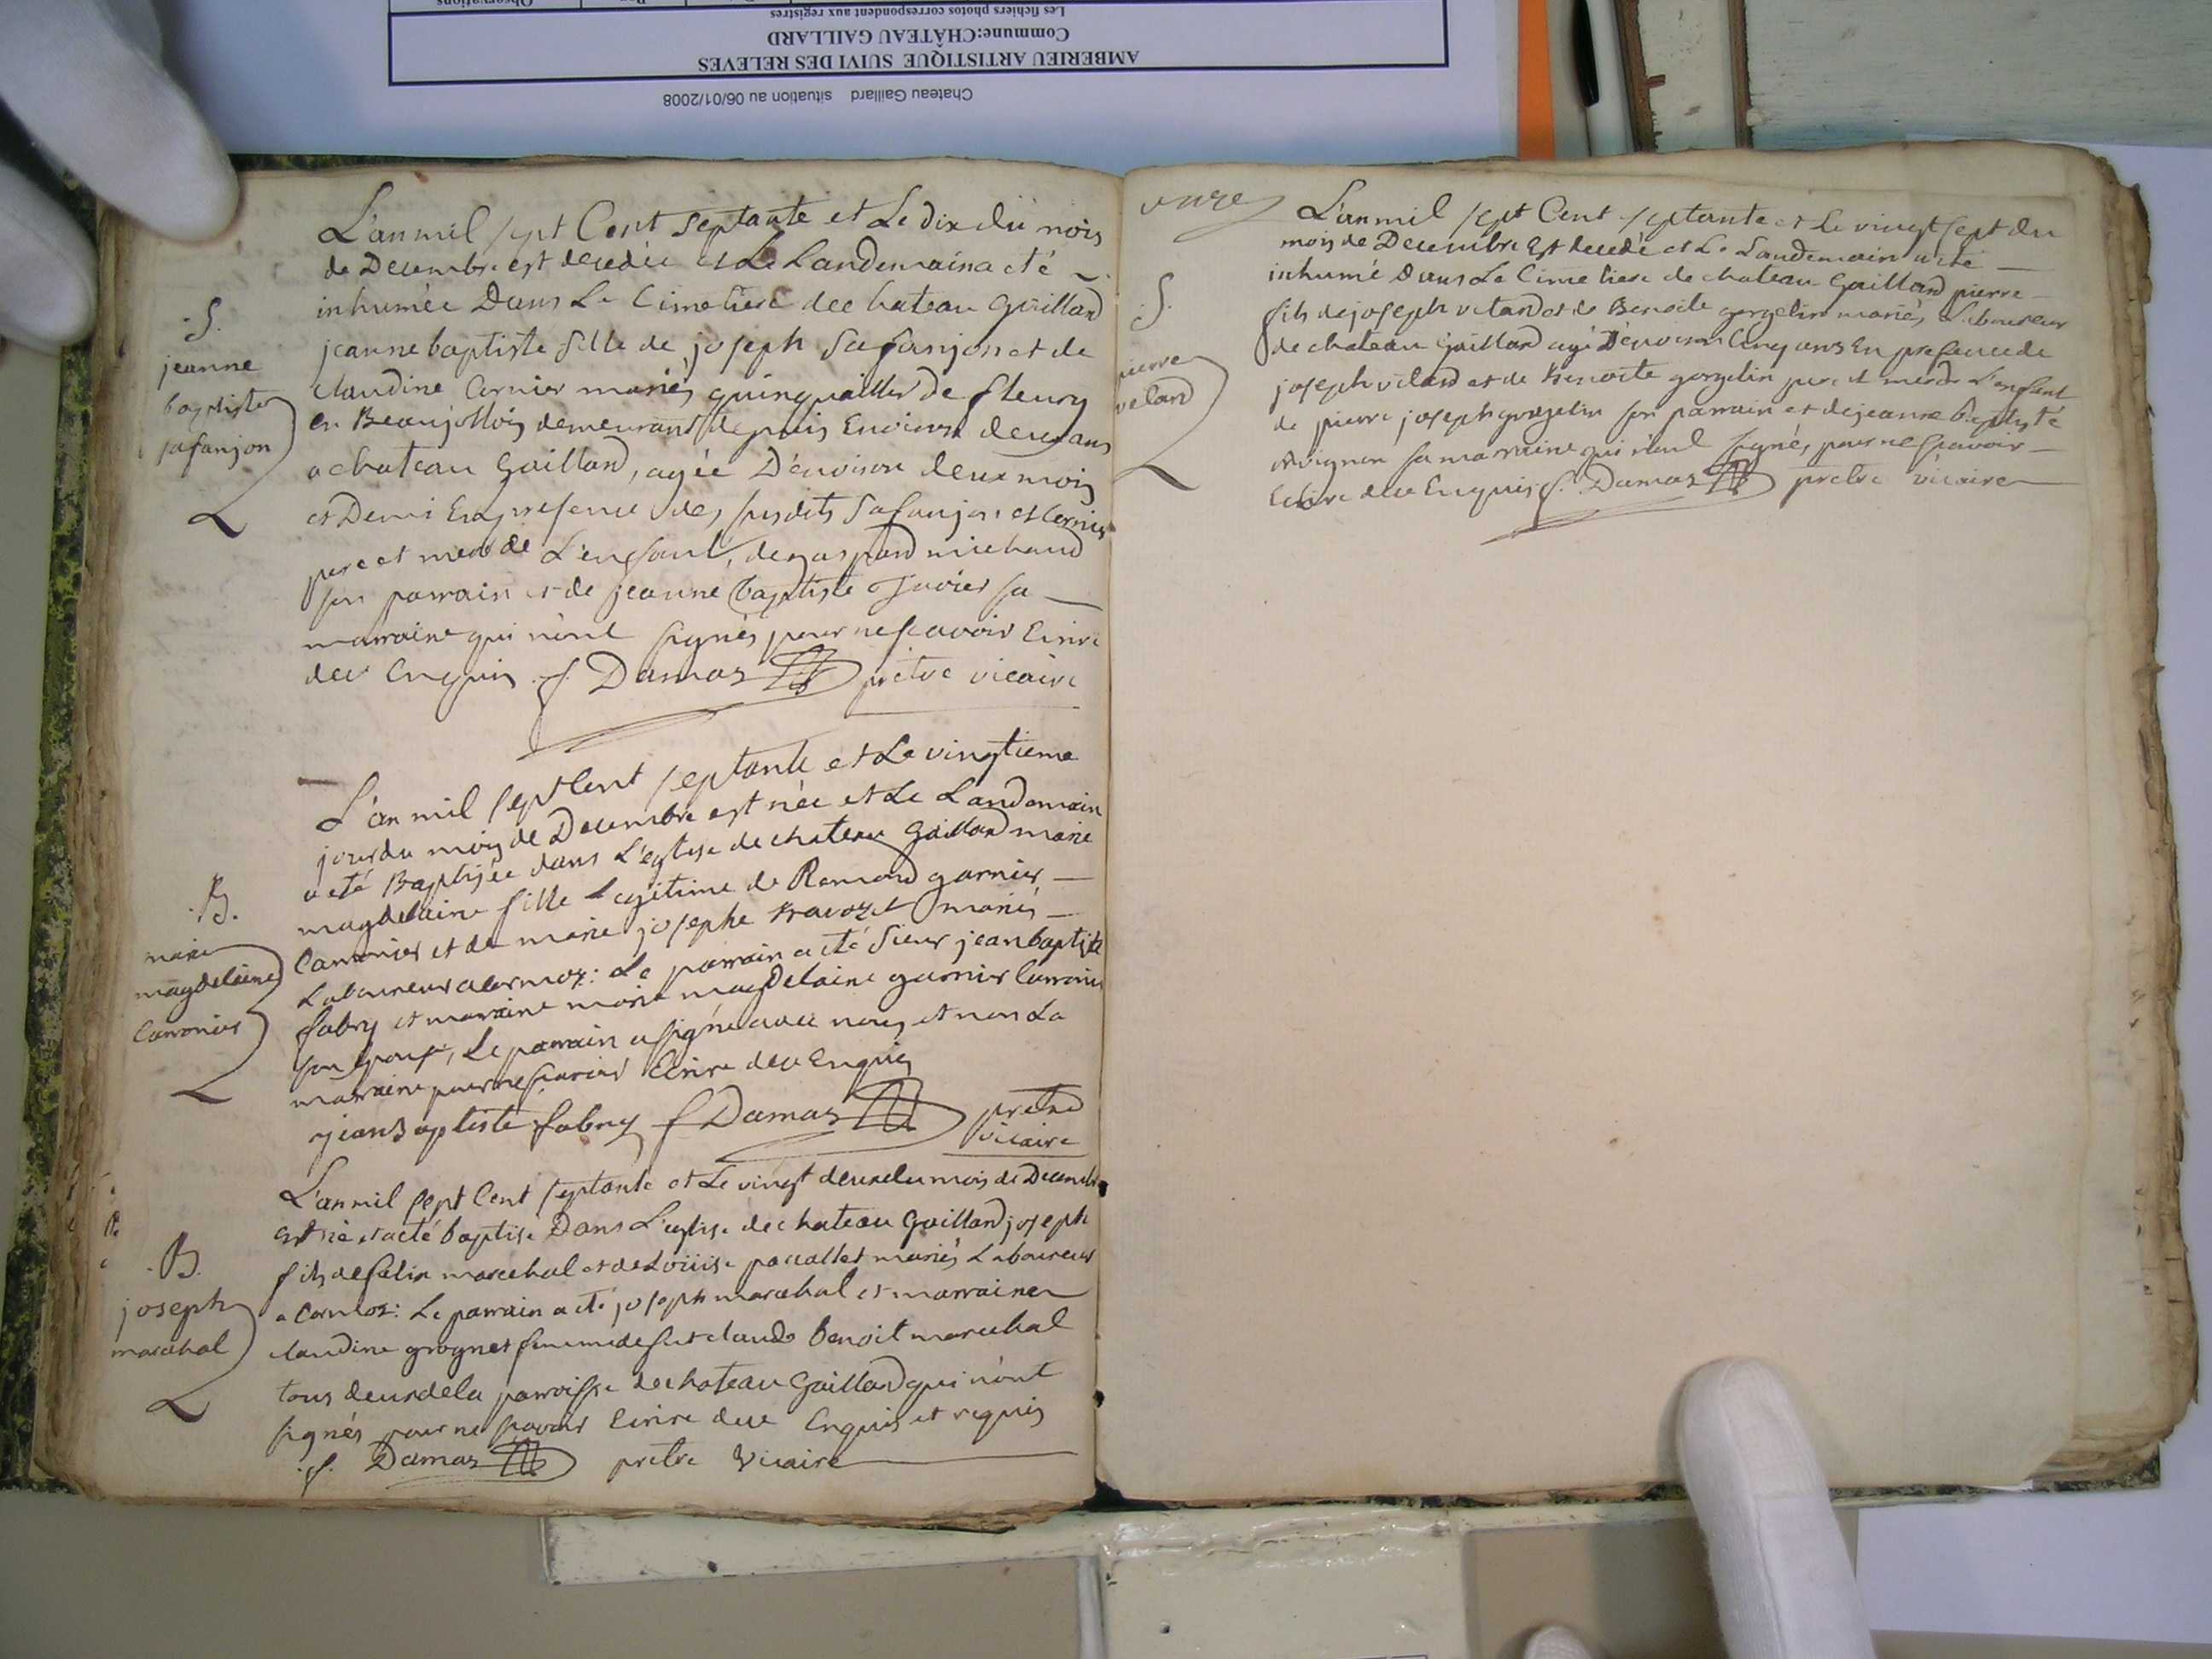 Observations
Les fichiers photos correspondent aux registres
Commune:CHÂTEAU GAILLARD
AMBERIEU ARTISTIQUE SUIVI DES RELEVES
Chateau Gaillard situation au 06/01/2008
L'an mil sept Cent septante et Le dix du mois
de Decembre est decedée et Le Landemain a eté
inhumée Dans Le Cimetiere de chateau Gaillard
jeanne baptiste fille de joseph Safanjon et de
claudine Cernier mariés quinquallier de fleury
en Beaujollois demeurant depuis Environ deux ans
a chateau Gaillard, agée D'environ deux mois
et Demi En presence des susdits Safanjon et Cernier
pere et mere de L'enfant, de gaspard michaud
son parrain et de jeanne baptiste Juvier sa
marraine qui n'ont signés pour ne scavoir Ecrire
de ce Enquis f Damas prêtre vicaire
S.
jeanne
baptiste
safanjon
L'an mil sept Cent septante et Le vingtieme
jour du mois de Decembre est née et Le Landemain
a eté Baptisée dans L'eglise de chateau Gaillard marie
magdelaine fille Legitime de Remond garnier
Carronier et de marie josephe Bravozet mariés
Laboureur a cormoz: Le parrain a eté Sieur jean baptiste
fabry et marraine marie magdelaine garnier Carronier
son epouse, Le parrain a signé avec nous et non La
marraine pour ne scavoir Ecrire de ce Enquis
jean Baptiste fabry f Damas pretre
vicaire
B.
marie
magdelaine
Carronier
L'an mil sept Cent septante et Le vingt deux du mois de Decembre
est né et a eté baptisé Dans L'eglise de chateau Gaillard joseph
fils de felix marechal et de Loüise paccallet mariés Laboureur
a Cormoz: Le parrain a eté joseph marechal et marraine
claudine grognet femme de fut claude benoit marechal
tous deux de la parroisse de chateau Gaillard qui n'ont
signés pour ne scavoir Ecrire de ce Enquis et requis
f. Damas pretre Vicaire
B.
joseph
marechal
L'an mil sept Cent septante et Le vingt sept du
mois de Decembre Est decedé et Le Landemain a eté
inhumé Dans Le Cimetiere de chateau Gaillard pierre
fils de joseph velard et de Benoite gorgelin mariés Laboureur
de chateau Gaillard agé D'environ Cinq ans En presence de
joseph velard et de Benoite gorgelin pere et mere de L'enfant
de pierre joseph gorgelin son parrain et de jeanne baptiste
sa marraine qui n'ont signés pour ne scavoir
Ecrire de ce Enquis f. Damas pretre vicaire
S.
pierre
velard